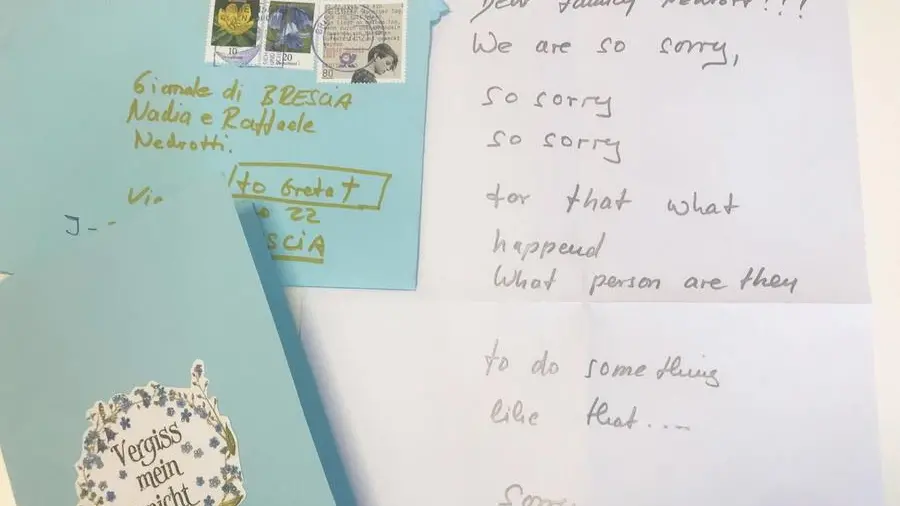 10
20
80
Giornale di BRESCIA
Nadia e Raffaele
Nedrotti.
to Greta †
Via
22
SCIA
J--
Vergiss
mein
nicht
We are so sorry,
so sorry
so sorry
for that what
happend
What person are they
to do something
like that....
Sorry